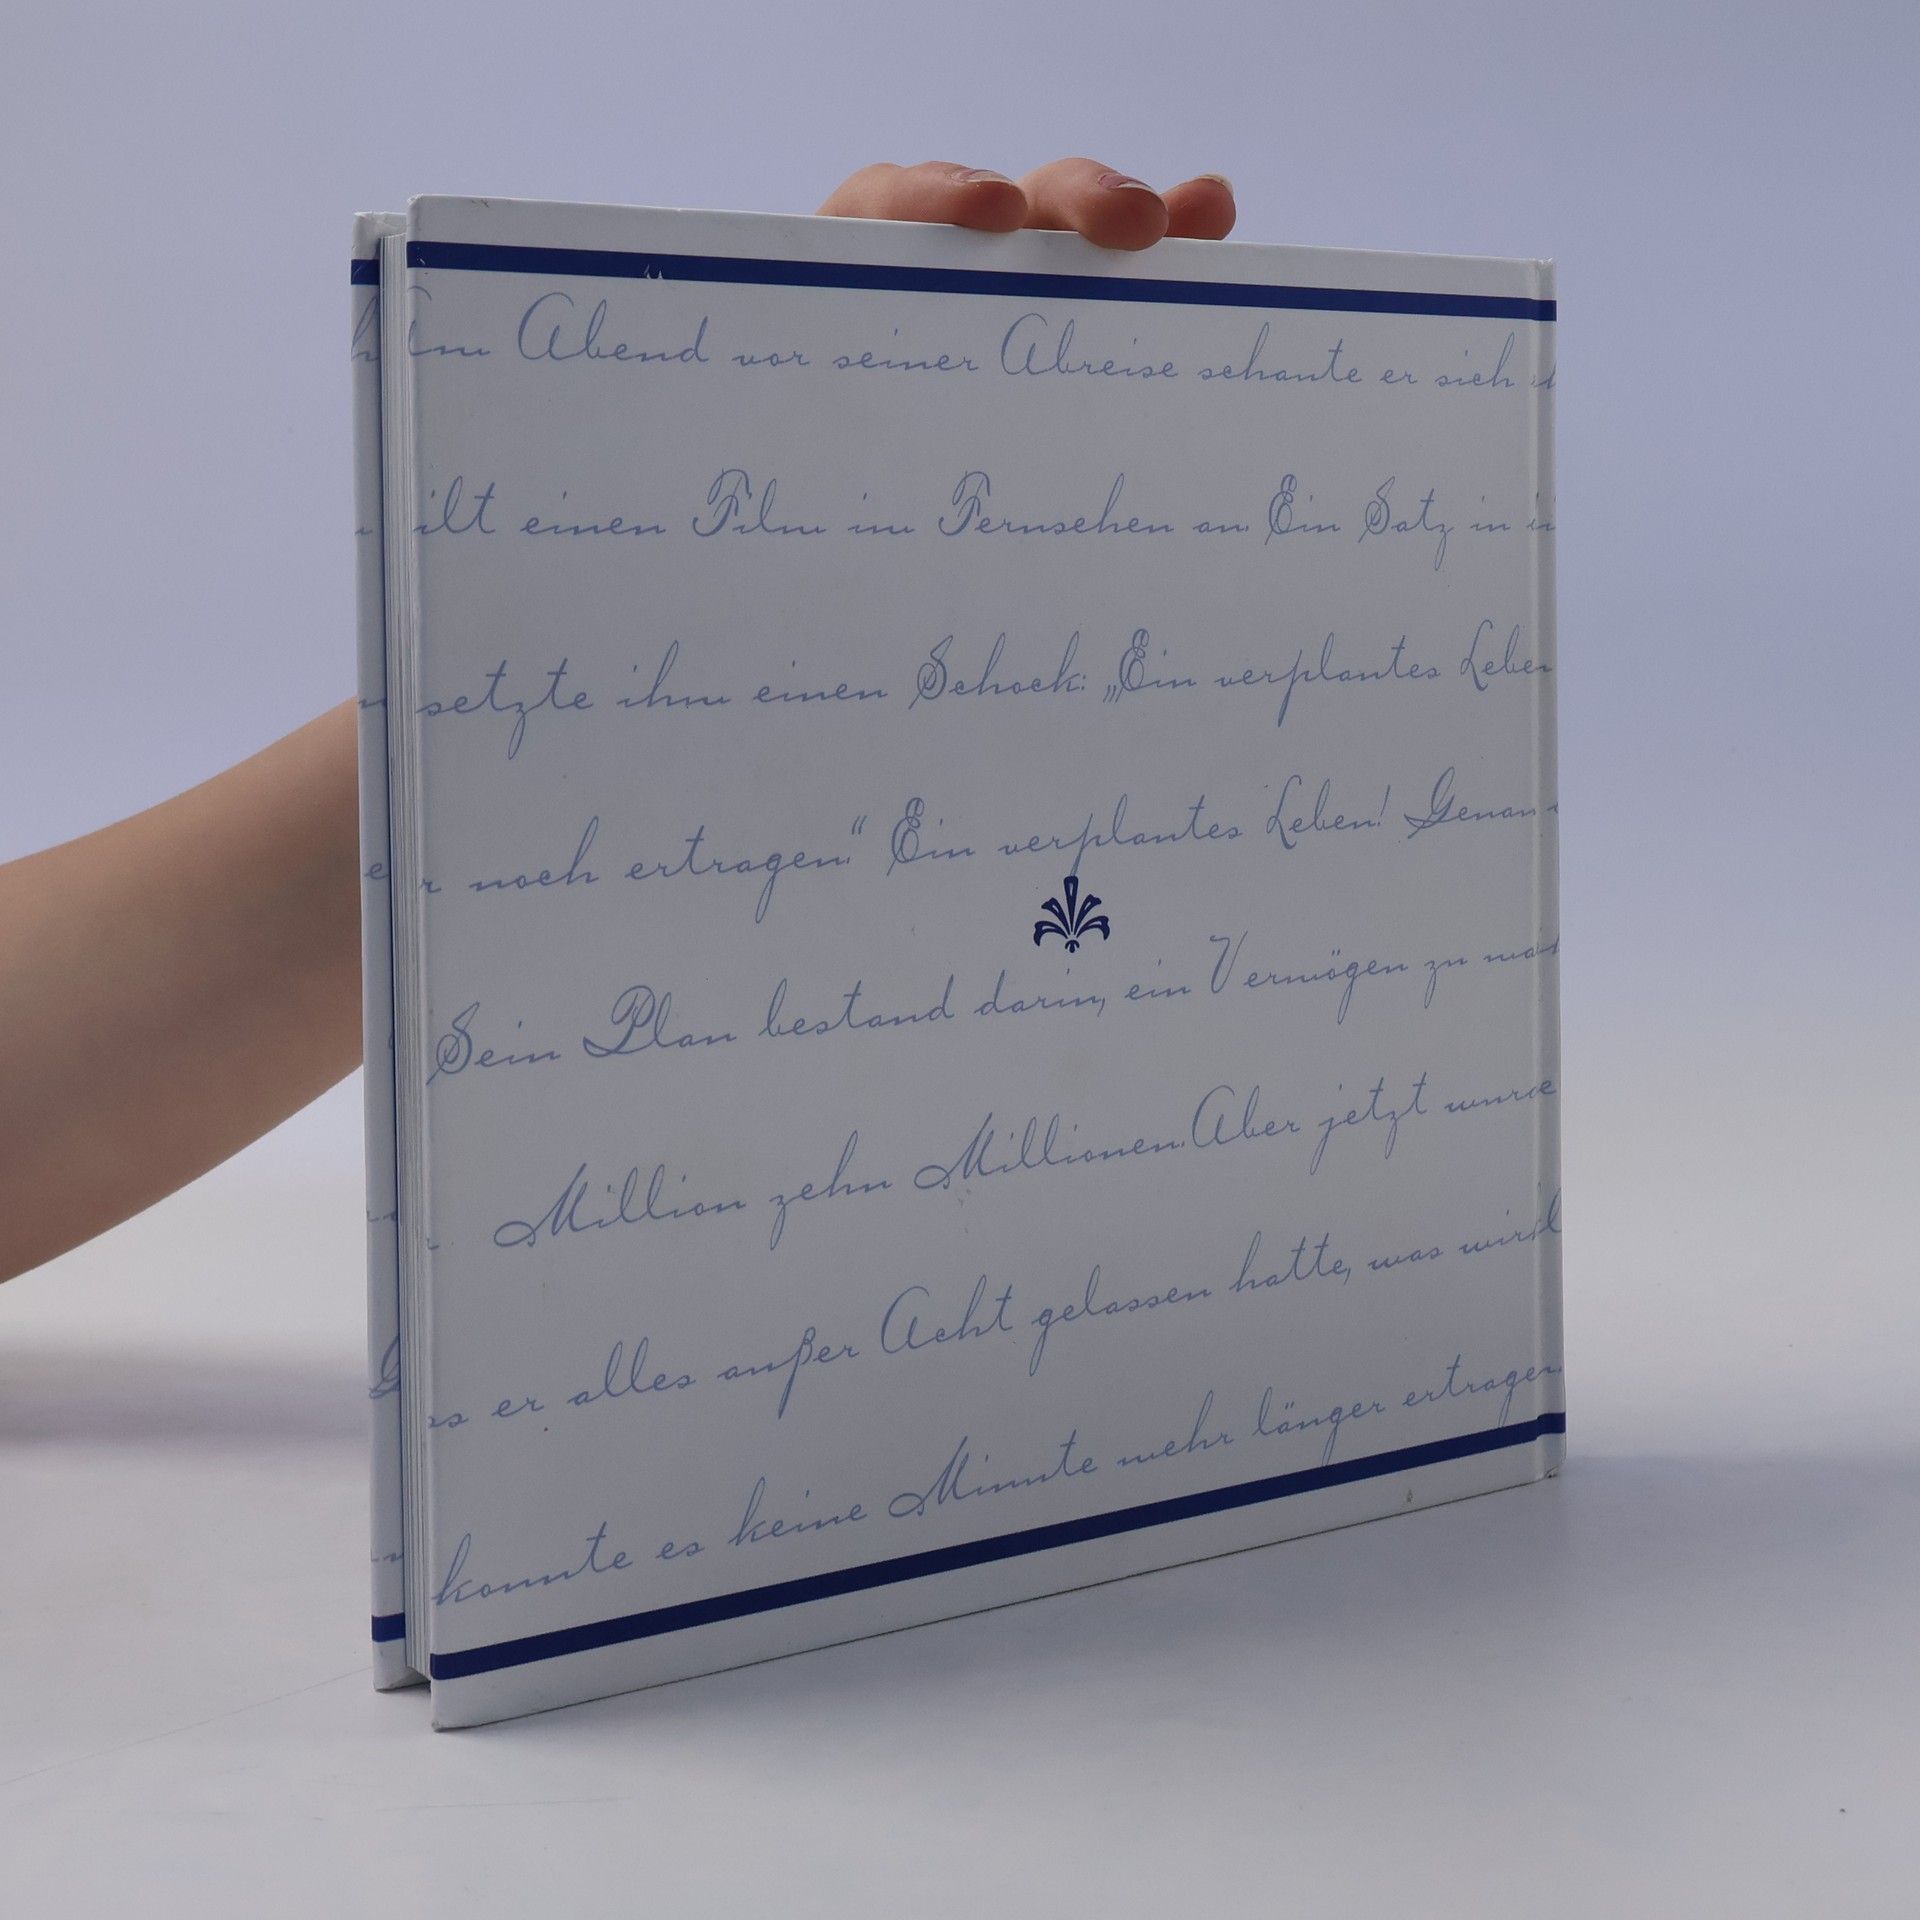 Am Abend vor seiner Abreise schaute er sich
einen Film im Fernsehen an. Ein Satz in
setzte ihm einen Schock: „Ein verplantes Leben
noch ertragen.“ Ein verplantes Leben! Genau
Sein Plan bestand darin, ein Vermögen zu
Million zehn Millionen. Aber jetzt wurde
er alles außer Acht gelassen hatte, was
konnte es keine Minute mehr länger ertragen.